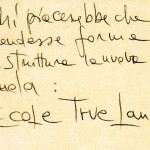 hi piacerebbe che
endesse forma
struttura la nuova
uola :
cole True Lan